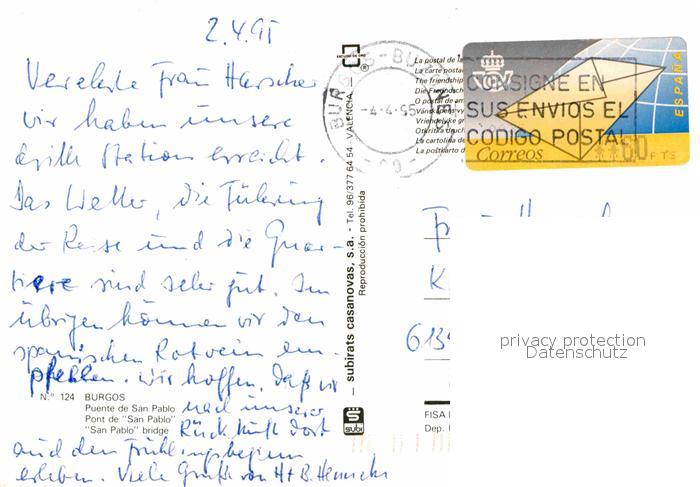 2.4.95
Verehrte Frau Harscher,
wir haben unsere
dritte Station erreicht.
Das Wetter, die Führung
der Reise und die Quar-
tiere sind sehr gut. Im
übrigen können wir den
spanischen Rotwein em-
pfehlen. Wir hoffen, daß wir
nach unserer
Rückkunft dort
auch den Frühlingsbeginn
erleben. Viele Grüße von H + B.
N.º 124 BURGOS
Puente de San Pablo
Pont de "San Pablo"
"San Pablo" bridge
subirats casanovas, s.a. - Tel. 96/377 64 54 - VALENCIA
Reproducción prohibida
subi
BURGOS
-4-4-95
La postal de la
La carte posta
The friendship
Die Freundsch
O postal de am
Vriendelijke gr
La cartolina de
La postkarto d
CONSIGNE EN
SUS ENVIOS EL
CODIGO POSTAL
Correos
ESPAÑA
**60 PTS
K
FISA
Dep.
privacy protection
Datenschutz